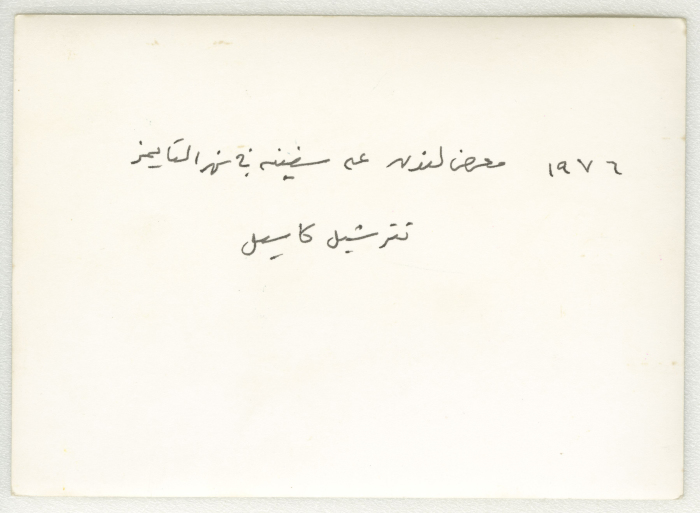 ١٩٧٦ معرض لندن على سفينه في نهر التايمز
تترشيل كاسيل